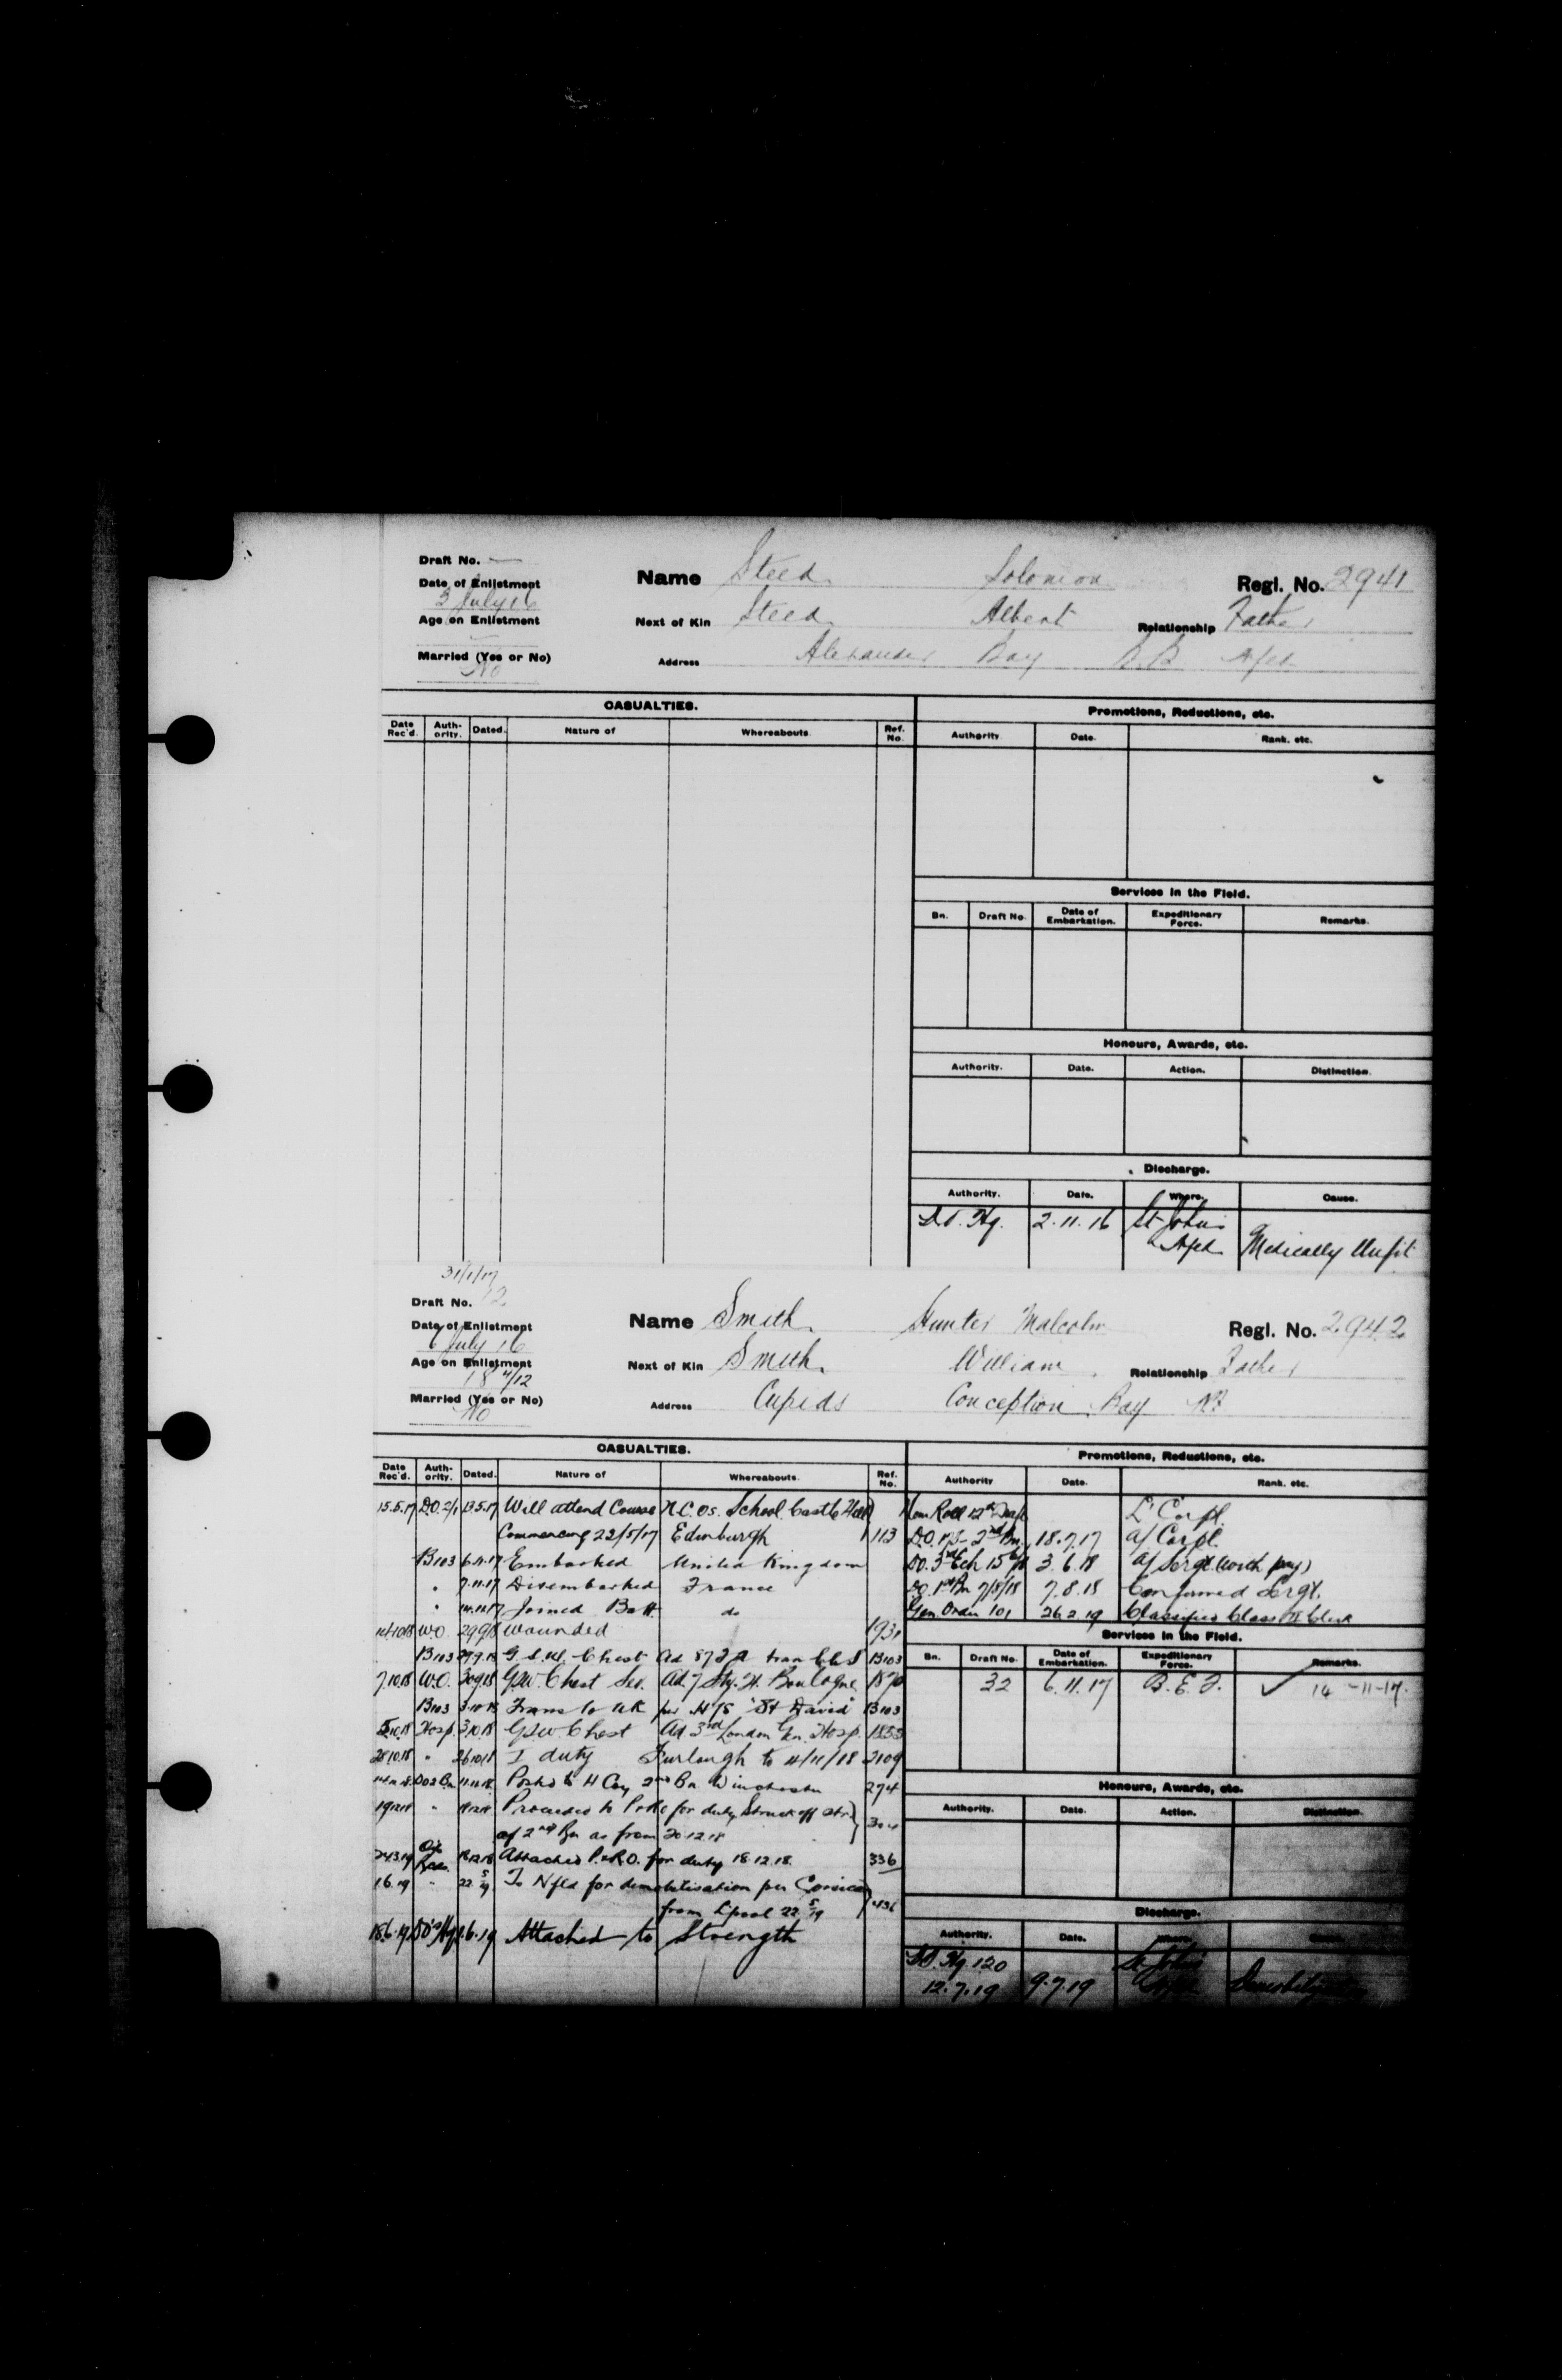 Draft No. —
Date of Enlistment
2 July 16
Age on Enlistment
Married (Yes or No)
No
Name Steed Solomon Regl. No. 2941
Next of Kin Steed Albert Relationship Father
Address Alexander Bay B.B. Nfld
CASUALTIES.
Date Rec'd. Auth-ority. Dated. Nature of Whereabouts. Ref. No.
Promotions, Reductions, etc.
Authority. Date. Rank, etc.
Services in the Field.
Bn. Draft No. Date of Embarkation. Expeditionary Force. Remarks.
Honours, Awards, etc.
Authority. Date. Action. Distinction.
Discharge.
Authority. Date. Where. Cause.
2.11.16 St Johns Nfld Medically Unfit
31/1/17
Draft No. 12
Date of Enlistment
6 July 16
Age on Enlistment
18 11/12
Married (Yes or No)
No
Name Smith Hunter Malcolm Regl. No. 2942
Next of Kin Smith William Relationship Father
Address Cupids Conception Bay Nf
CASUALTIES.
Date Rec'd. Auth-ority. Dated. Nature of Whereabouts. Ref. No.
15.5.17 D.O. 2/1 13.5.17 Will attend Course N.C.Os. School Castle Hall
Commencing 22/5/17 Edinburgh 113
B103 6.11.17 Embarked United Kingdom
" 7.11.17 Disembarked France
" 14.11.17 Joined Batt do
14.10.18 W.O. 29.9.18 Wounded 1931
B103 29.9.18 G.S.W. Chest Ad 87 B103
7.10.18 W.O. 30.9.18 GSW. Chest Sev. Ad. 7 Sty. H. Boulogne 1870
B103 3.10.18 Trans to UK per H/S "St David" B103
5.10.18 Hosp. 3.10.18 GSW Chest Ad 3rd London Gen. Hosp.
28.10.18 " 26.10.18 I duty Furlough to 4/11/18 2109
DO 2 Bn 11.11.18 Posted to H Coy 2nd Bn Winchester 294
" Proceeded to P&RO for duty Struck off Str.
of 2nd Bn as from 20.12.18
24.3.19 18.12.18 Attached P&RO. for duty 18.12.18. 336
1.6.19 " 22.5.19 To Nfld for demobilisation per Corsican
from L'pool 22.5.19
18.6.19 Attached to Strength
Promotions, Reductions, etc.
Authority. Date. Rank, etc.
Nom Roll 12th Draft L' Corpl.
D.O. 2nd Bn. 18.7.17 a/ Corpl.
D.O. 3rd Ech 3.6.18 a/ Sergt (with pay)
D.O. 1st Bn 7/8/18 7.8.18 Confirmed Sergt.
Gen Order 101 26.2.19 Classified Class II Clerk
Services in the Field.
Bn. Draft No. Date of Embarkation. Expeditionary Force. Remarks.
32 6.11.17 B.E.F. ✓ 14-11-17.
Honours, Awards, etc.
Authority. Date. Action. Distinction.
Discharge.
Authority. Date. Where. Cause.
120
12.7.19 9.7.19 St Johns Nfld Demobilization